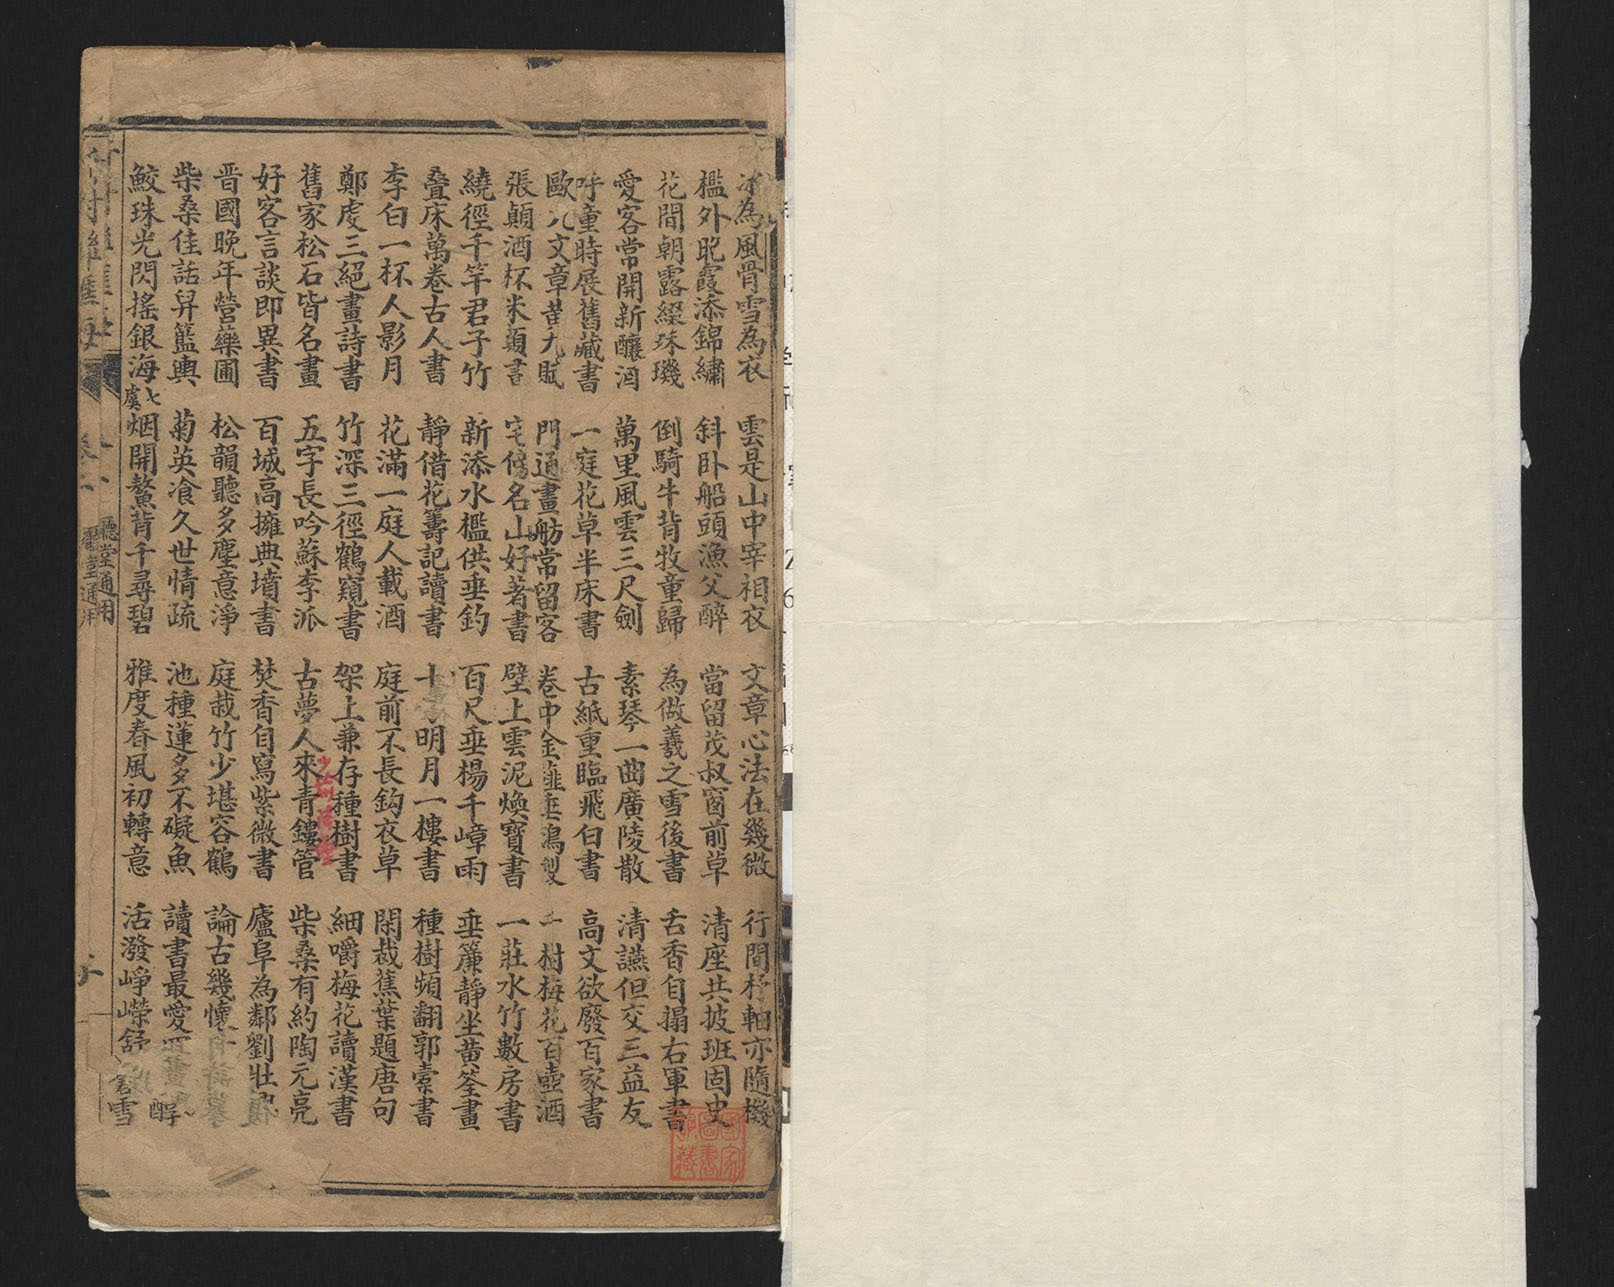 冰為風骨雪為衣　雲是山中宰相衣　文章心法在幾微　行間杼軸亦隨機
檻外晚霞添錦繡　斜卧船頭漁父醉　當留茂叔窗前草　清座共披班固史
花間朝露綴珠璣　倒騎牛背牧童歸　為倣羲之雪後書　舌香自搨右軍書
愛客常開新釀酒　萬里風雲三尺劍　素琴一曲廣陵散　清讌但交三益友
呼童時展舊藏書　一庭花草半床書　古紙重臨飛白書　高文欲廢百家書
歐九文章黃九賦　門通畫舫常留客　卷中金薤垂鴻製　一樹梅花百壺酒
張顛酒杯米顛書　宅傍名山好著書　壁上雲泥煥寶書　一莊水竹數房書
繞徑千竿君子竹　新添水檻供垂釣　百尺垂楊千嶂雨　垂簾靜坐黃筌畫
疊床萬卷古人書　靜借花籌記讀書　十明月一樓書　種樹頻翻郭橐書
李白一杯人影月　花滿一庭人載酒　庭前不長鈎衣草　閑裁蕉葉題唐句
鄭虔三絕畫詩書　竹深三徑鶴窺書　架上兼存種樹書　細嚼梅花讀漢書
舊家松石皆名畫　五字長吟蘇李派　古夢人來青鏤管　柴桑有約陶元亮
好客言談即異書　百城高擁典墳書　焚香自寫紫微書　廬阜為鄰劉壯
晋國晚年營藥圃　松韻聽多塵意淨　庭栽竹少堪容鶴　論古幾懷
柴桑佳話舁籃輿　菊英飡久世情疏　池種蓮多不礙魚　讀書最愛
鮫珠光閃搖銀海　七虞　烟開鰲背千尋碧　雅度春風初轉意　活潑崢嶸舒
聽堂通用
國家圖書館藏